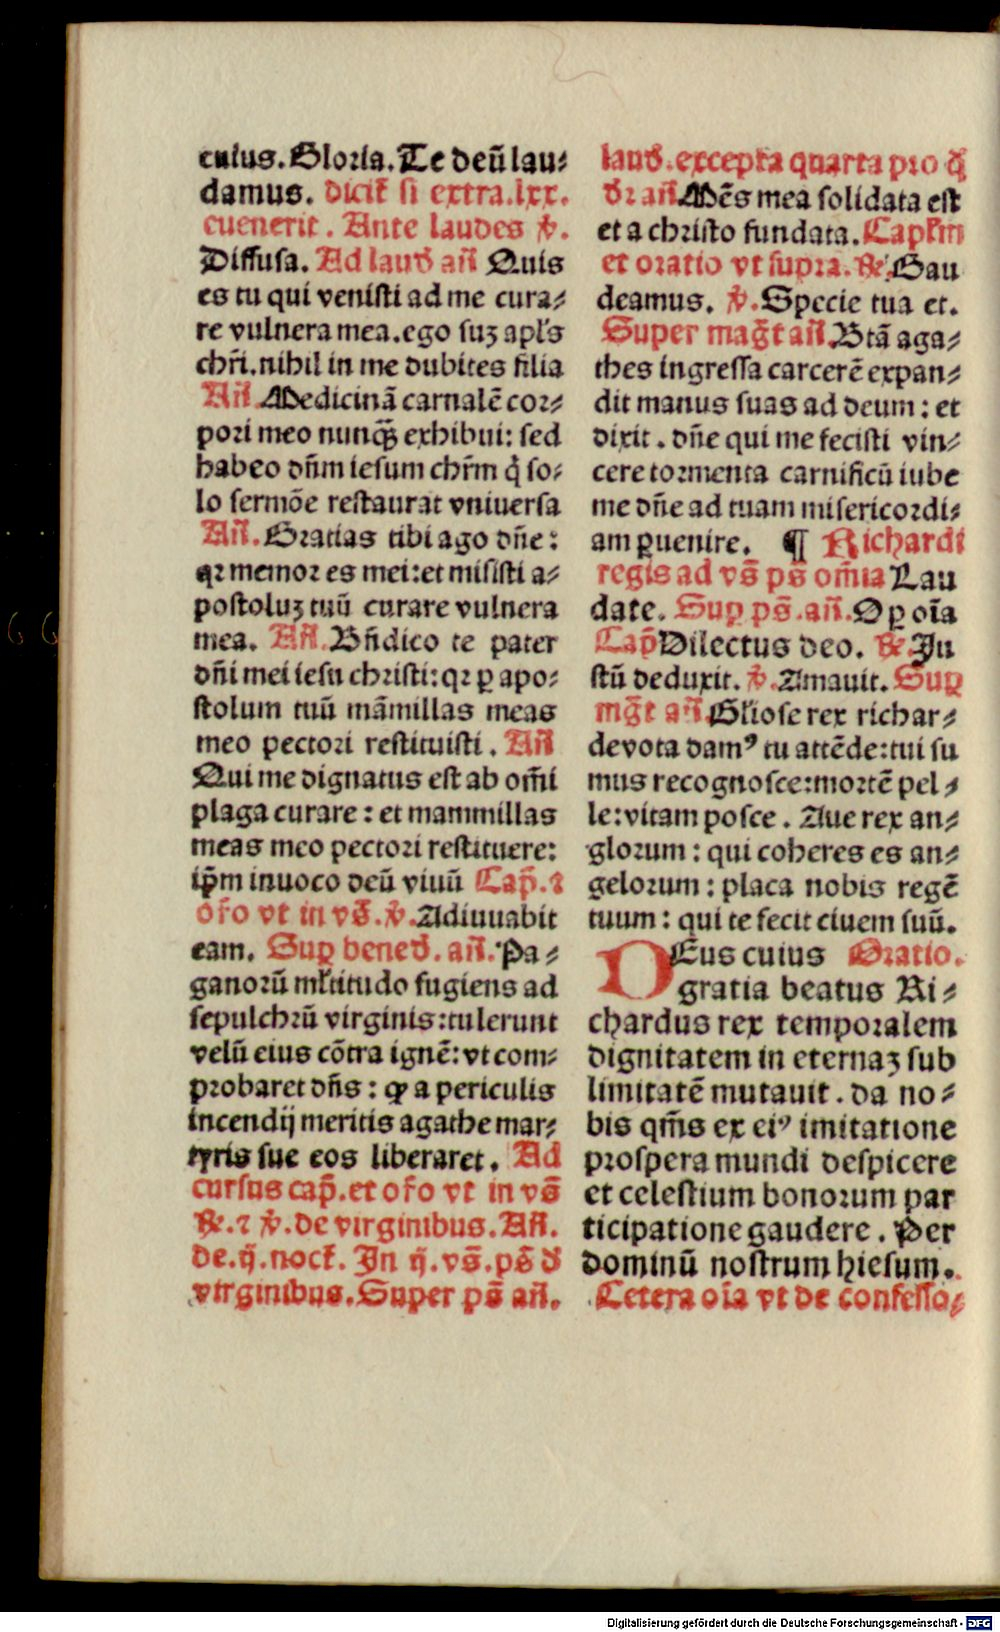 cuius. Gloria. Te deū lau⸗
damus. dicit̄ si extra.lxx.
euenerit. Ante laudes ℣.
Diffusa. Ad laud̄ an̄ Quis
es tu qui venisti ad me cura⸗
re vulnera mea. ego suꝫ apl's
chr̄i. nihil in me dubites filia
An̄ Medicinā carnalē cor⸗
pori meo nunqꝫ̄ exhibui: sed
habeo dn̄m iesum chr̄m q̇ so⸗
lo sermōe restaurat vniuersa
An̄. Gratias tibi ago dn̄e:
qꝛ memor es mei: et misisti a⸗
postoluꝫ tuū curare vulnera
mea. An̄. Bn̄dico te pater
dn̄i mei iesu christi: qꝛ ꝑ apo⸗
stolum tuū māmillas meas
meo pectori restituisti. An̄
Qui me dignatus est ab om̄i
plaga curare: et mammillas
meas meo pectori restituere:
ip̄m inuoco deū viuū Cap̄. ⁊
or̄o vt in vs̄. ℣. Adiuuabit
eam. Suꝑ bened̄. an̄. Pa⸗
ganorū ml̄titudo fugiens ad
sepulchrū virginis: tulerunt
velū eius cōtra ignē: vt com⸗
probaret dn̄s: ꝙ a periculis
incendij meritis agathe mar⸗
tyris sue eos liberaret. Ad
cursus cap̄. et or̄o vt in vs̄
℟. ⁊ ℣. de virginibus. An̄.
de. ij. noct̄. In ij. vs̄. ps̄ d̄
virginibus. Super ps̄ an̄.
laud̄. excepta quarta pro q̄
dr̄ an̄. Mēs mea solidata est
et a christo fundata. Capl'm
et oratio vt supra. ℟. Gau
deamus. ℣. Specie tua et.
Super maḡt an̄. Btā aga⸗
thes ingressa carcerē expan⸗
dit manus suas ad deum: et
dixit. dn̄e qui me fecisti vin⸗
cere tormenta carnificū iube
me dn̄e ad tuam misericordi⸗
am ꝑuenire. ¶ Richardi
regis ad vs̄ ps̄ om̄ia Lau
date. Suꝑ ps̄. an̄. O ꝑ oīa
Cap̄ Dilectus deo. ℟. Iu
stū deduxit. ℣. Amauit. Suꝑ
mḡt an̄. Gl'iose rex richar⸗
de vota damꝰ tu attēde: tui su
mus recognosce: mortē pel⸗
le: vitam posce. Aue rex an⸗
glorum: qui coheres es an⸗
gelorum: placa nobis regē
tuum: qui te fecit ciuem suū.
DEus cuius Oratio.
gratia beatus Ri⸗
chardus rex temporalem
dignitatem in eternaꝫ sub
limitatē mutauit. da no⸗
bis qm̄s ex eiꝰ imitatione
prospera mundi despicere
et celestium bonorum par
ticipatione gaudere. Per
dominū nostrum hiesum.
Cetera oīa vt de confesso⸗
Digitalisierung gefördert durch die Deutsche Forschungsgemeinschaft - DFG